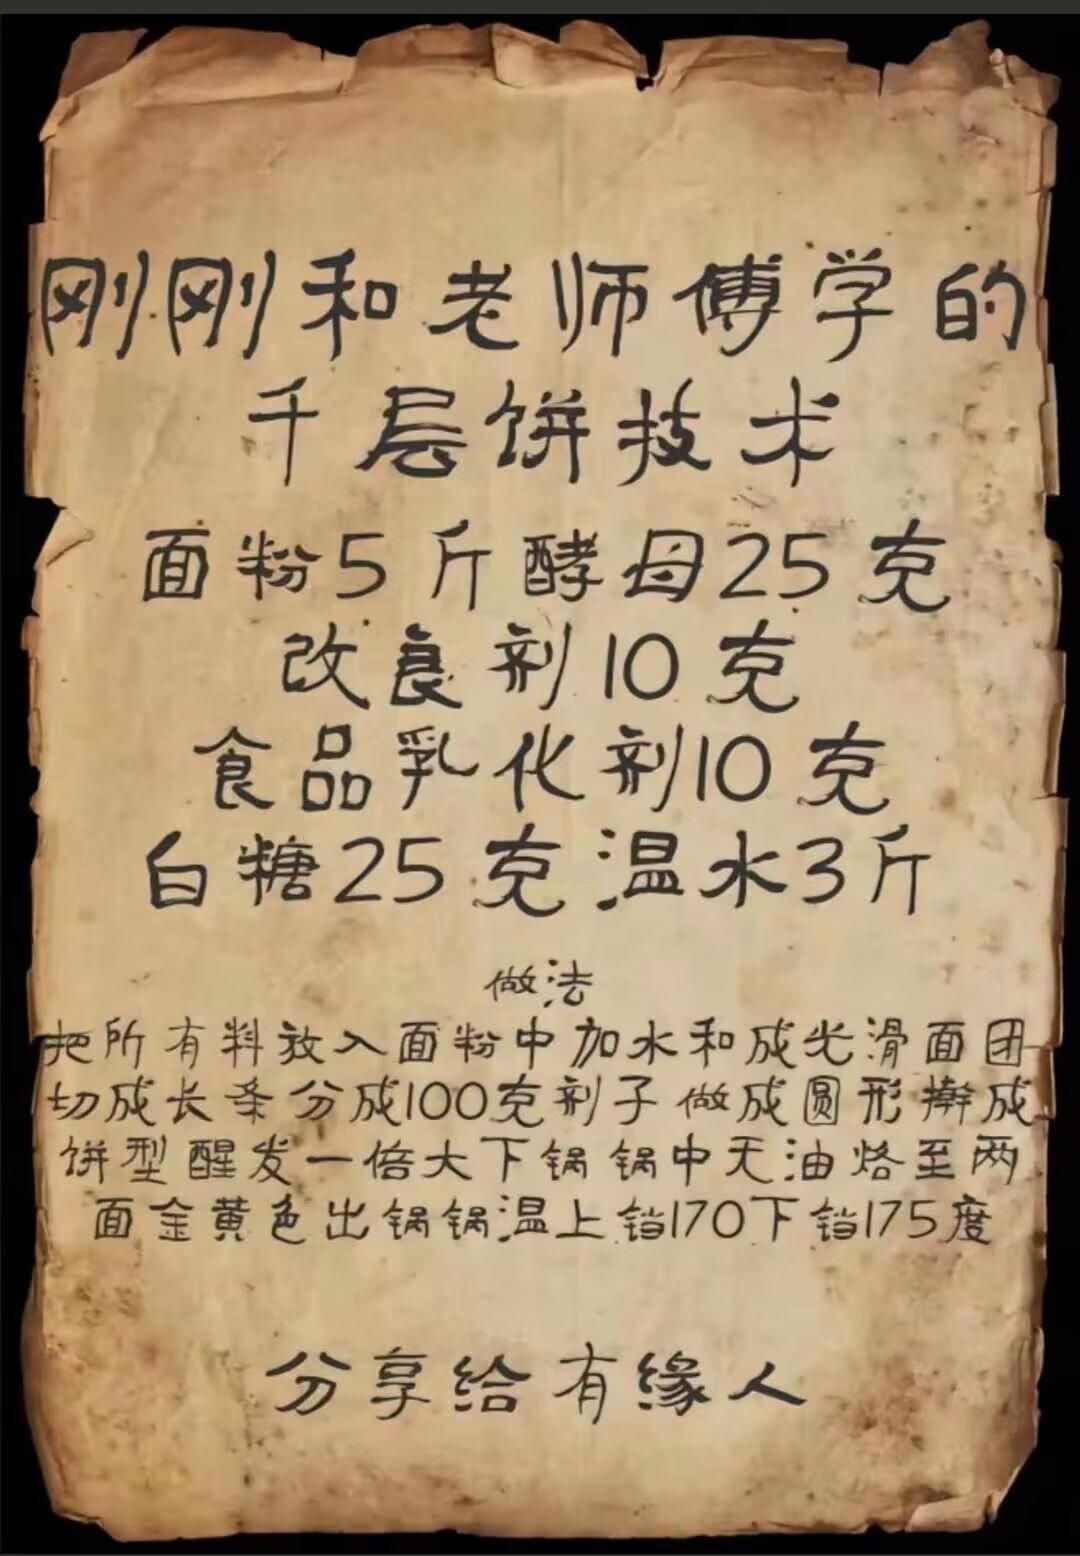 刚刚和老师傅学的
千层饼技术
面粉5斤酵母25克
改良剂10克
食品乳化剂10克
白糖25克温水3斤
做法
把所有料放入面粉中加水和成光滑面团
切成长条分成100克剂子做成圆形擀成
饼型醒发一倍大下锅锅中无油烙至两
面金黄色出锅锅温上铛170下铛175度
分享给有缘人